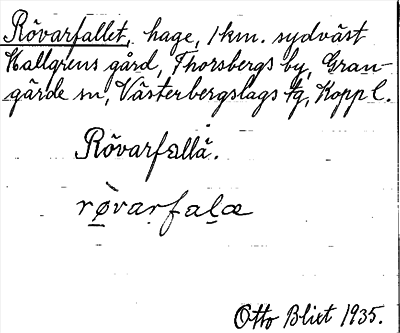 Rövarfallet, hage, 1 km. sydväst
Hallgrens gård, Thorsbergs by, Gran-
gärde sn, Västerbergslags tg, Kopp l.
Rövarfallä.
rø̀varfalæ
Otto Blixt 1935.